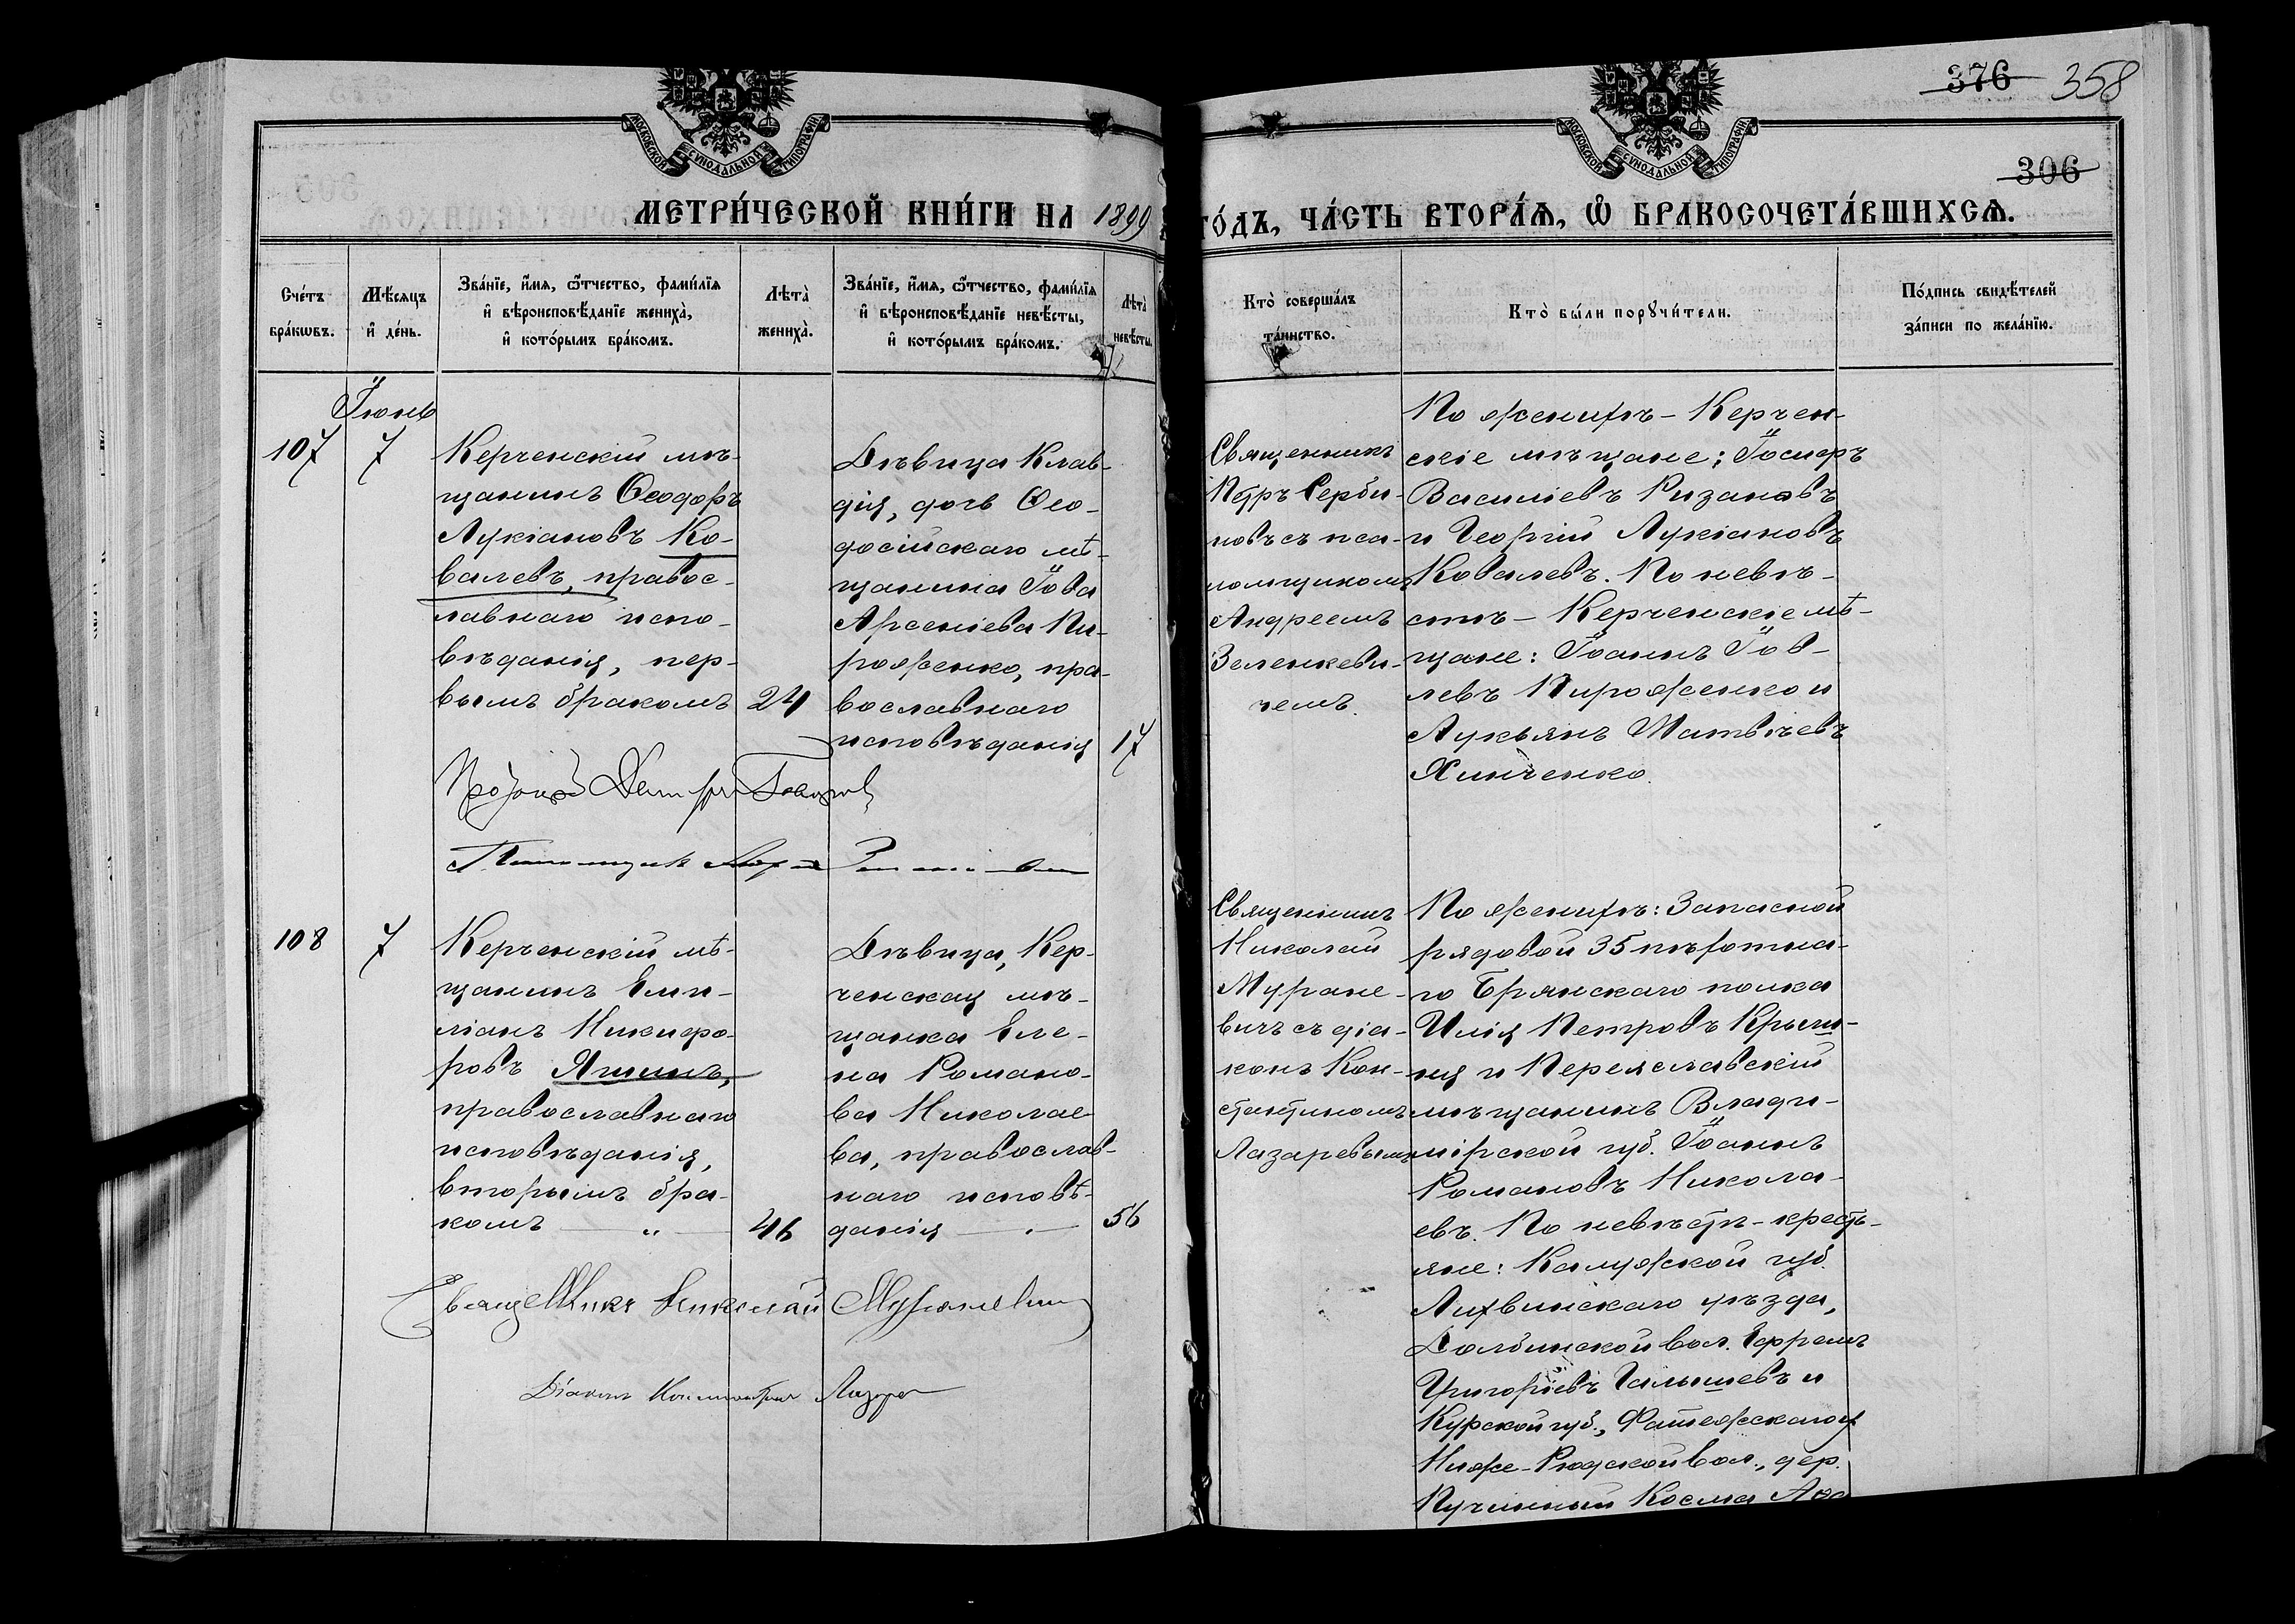 376 358
306
МОСКОВСКОЙ СѴНОДАЛЬНОЙ ТИПОГРАФІИ
МОСКОВСКОЙ СѴНОДАЛЬНОЙ ТИПОГРАФІИ
МЕТРИ́ЧЕСКОЙ КНИ́ГИ НА 1899 ГО́ДЪ, ЧА́СТЬ ВТОРА́Ѧ, Ѽ БРАКОСОЧЕТА́ВШИХСѦ.
Сче́тъ
бра́кѡвъ.
Мѣ́сяцъ
и҆ де́нь.
Зва́нїе, и҆́мѧ, ѻ҆́тчество, фами́лїѧ
и҆ вѣроисповѣ́данїе жениха̀,
и҆ кото́рымъ бра́комъ.
Лѣта̀
жениха̀.
Зва́нїе, и҆́мѧ, ѻ҆́тчество, фами́лїѧ
и҆ вѣроисповѣ́данїе невѣ́сты,
и҆ кото́рымъ бра́комъ.
Лѣта̀
невѣ́сты.
Кто̀ соверша́лъ
та́инство.
Кто̀ бы́ли порꙋчи́тели.
По́дпись свидѣ́телей
за́писи по жела́нїю.
107
Іюнь
7
Керченскій мѣ-
щанинъ Ѳеодоръ
Лукіановъ Ко-
валевъ, правос-
лавнаго испо-
вѣданія, пер-
вымъ бракомъ
24
Дѣвица Клав-
дія, дочь Ѳео-
досійскаго мѣ-
щанина Іова
Арсеніева Пи-
роженко, пра-
вославнаго
исповѣданія
17
Священникъ
Петръ Серби-
новъ съ пса-
ломщикомъ
Андреемъ
Зеленкеви-
чемъ.
По женихѣ - Керчен-
скіе мѣщане: Іосифъ
Василіевъ Ризановъ
и Георгій Лукіановъ
Ковалевъ. По невѣ-
стѣ - Керченскіе мѣ-
щане: Іоаннъ Іов-
левъ Пироженко и
Лукьянъ Матвѣевъ
Хинченко.
108
7
Керченскій мѣ-
щанинъ Еми-
ліанъ Никифо-
ровъ Яшинъ,
православнаго
исповѣданія,
вторымъ бра-
комъ — „ —
46
Дѣвица, Кер-
ченская мѣ-
щанка Еле-
на Романо-
ва Николае-
ва, православ-
наго исповѣ-
данія — „ —
56
Священникъ
Николай
Муране-
вичъ съ діа-
конъ Кон-
стантиномъ
Лазаревымъ
По женихѣ: Запасной
рядовой 35 пѣхотна-
го Брянскаго полка
Илія Петровъ Крыш-
ня и Переяславскій
мѣщанинъ Влади-
мірской губ. Іоаннъ
Романовъ Никола-
евъ. По невѣстѣ - кресть-
яне: Калужской губ.
Лихвинскаго уѣзда,
Долбинской вол. Ефремъ
Григоріевъ Галышевъ и
Курской губ., Фатежскаго у.
Ниже-Рюдской вол., дер.
Пучинный Косма
Священникъ Николай Мураневичъ
Діаконъ Константинъ Лазарев